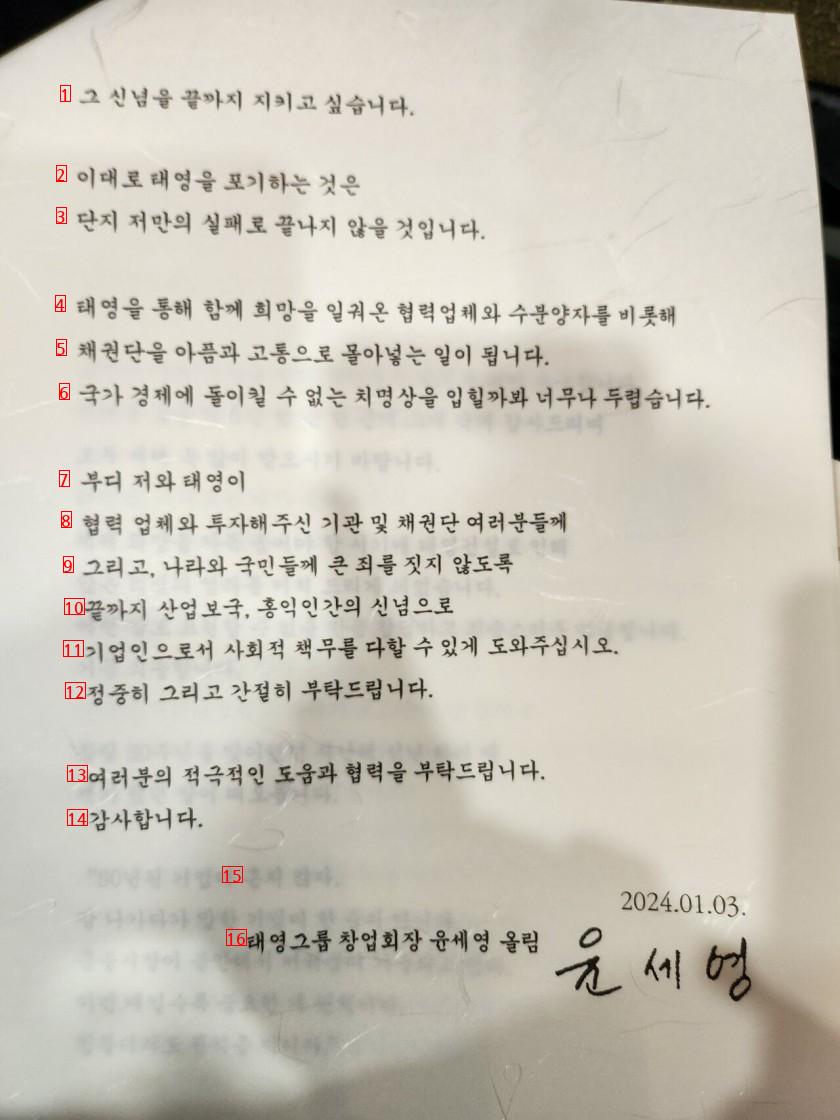 1 그 신념을 끝까지 지키고 싶습니다.
2 이대로 태영을 포기하는 것은
3 단지 저만의 실패로 끝나지 않을 것입니다.
4 태영을 통해 함께 희망을 일궈온 협력업체와 수분양자를 비롯해
5 채권단을 아픔과 고통으로 몰아넣는 일이 됩니다.
6 국가 경제에 돌이킬 수 없는 치명상을 입힐까봐 너무나 두렵습니다.
7 부디 저와 태영이
8 협력 업체와 투자해주신 기관 및 채권단 여러분들께
9 그리고, 나라와 국민들께 큰 죄를 짓지 않도록
10 끝까지 산업보국, 홍익인간의 신념으로
11 기업인으로서 사회적 책무를 다할 수 있게 도와주십시오.
12 정중히 그리고 간절히 부탁드립니다.
13 여러분의 적극적인 도움과 협력을 부탁드립니다.
14 감사합니다.
15
2024.01.03.
16 태영그룹 창업회장 윤세영 올림 윤세영